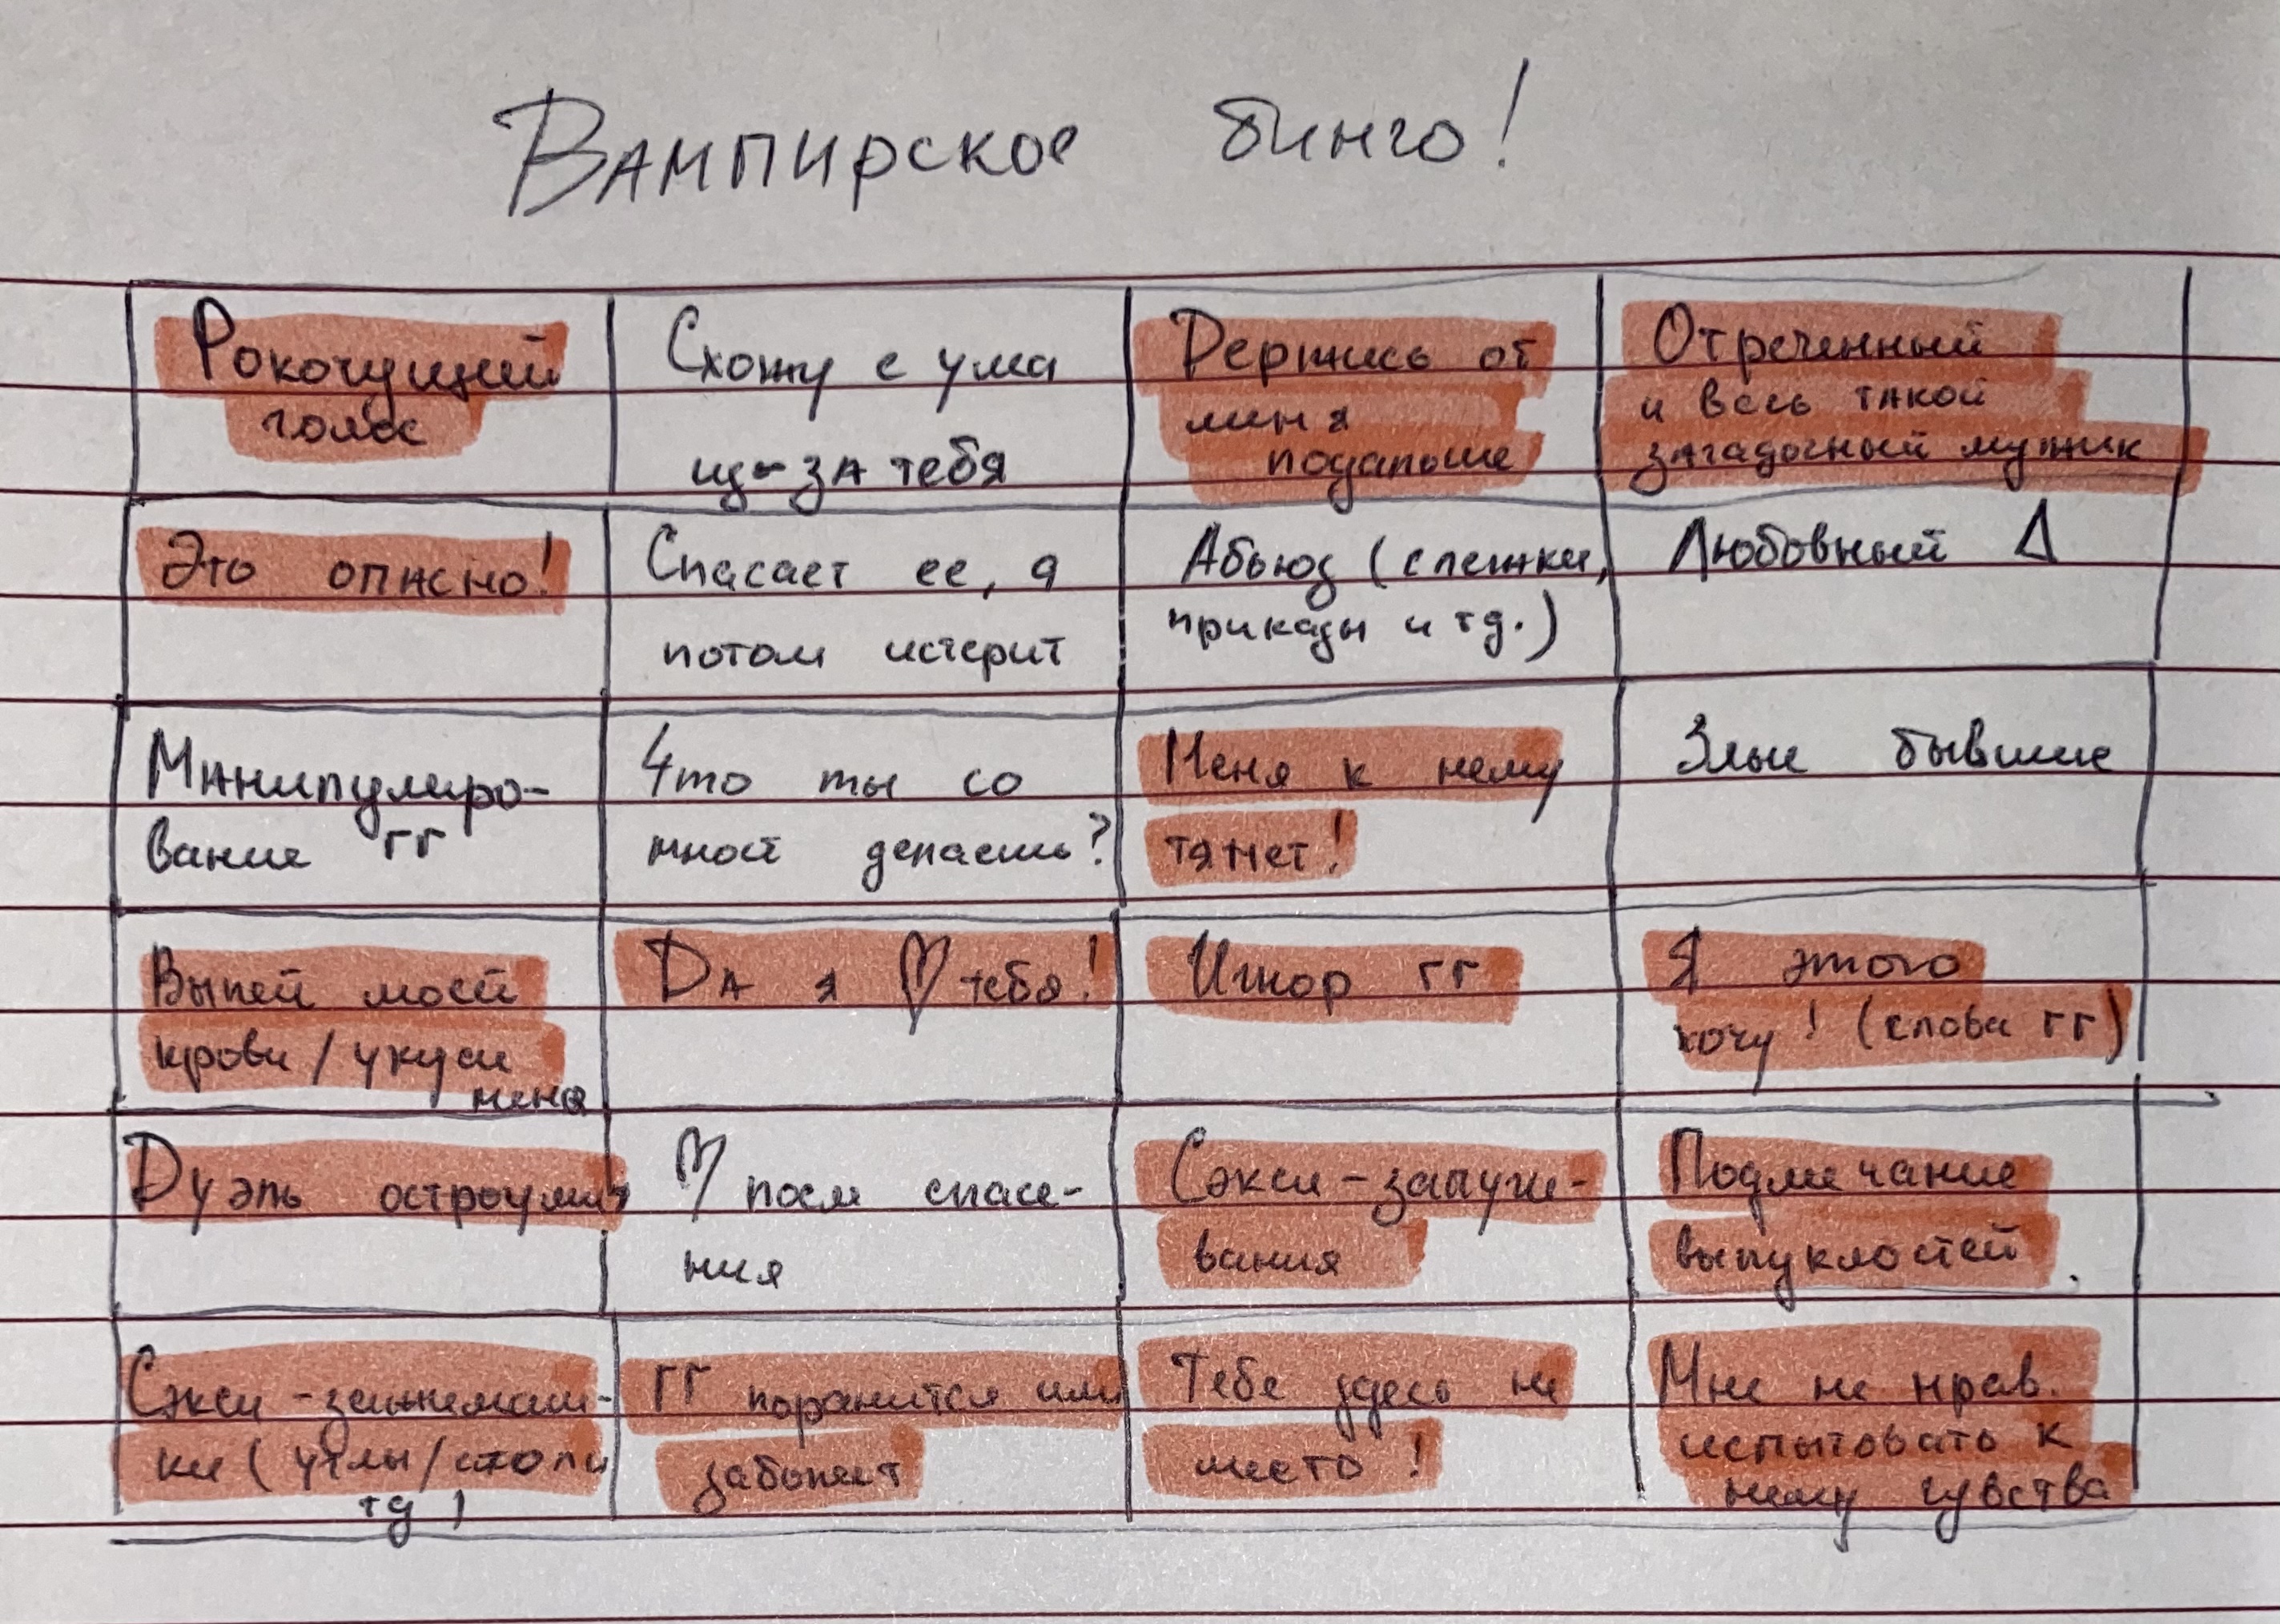 Вампирское бинго!
Рокочущий
голос
Схожу с ума
из-за тебя
Держись от
меня
подальше
Отреченный
и весь такой
загадочный мужик
Это опасно!
Спасает ее, а
потом истерит
Абьюз (слежки,
приказы и тд.)
Любовный Δ
Манипулиро-
вание гг
Что ты со
мной делаешь?
Меня к нему
тянет!
Злые бывшие
Выпей моей
крови/укуси
меня
Да я ♡ тебя!
Игнор гг
Я этого
хочу! (слова гг)
Дуэль остроумия
♡ после спасе-
ния
Сэкси-запуги-
вания
Подмечание
выпуклостей
Сэкси-зажимаш-
ки (углы/столы
тд)
ГГ поранится или
заболеет
Тебе здесь не
место!
Мне не нрав.
испытовать к
нему чувства